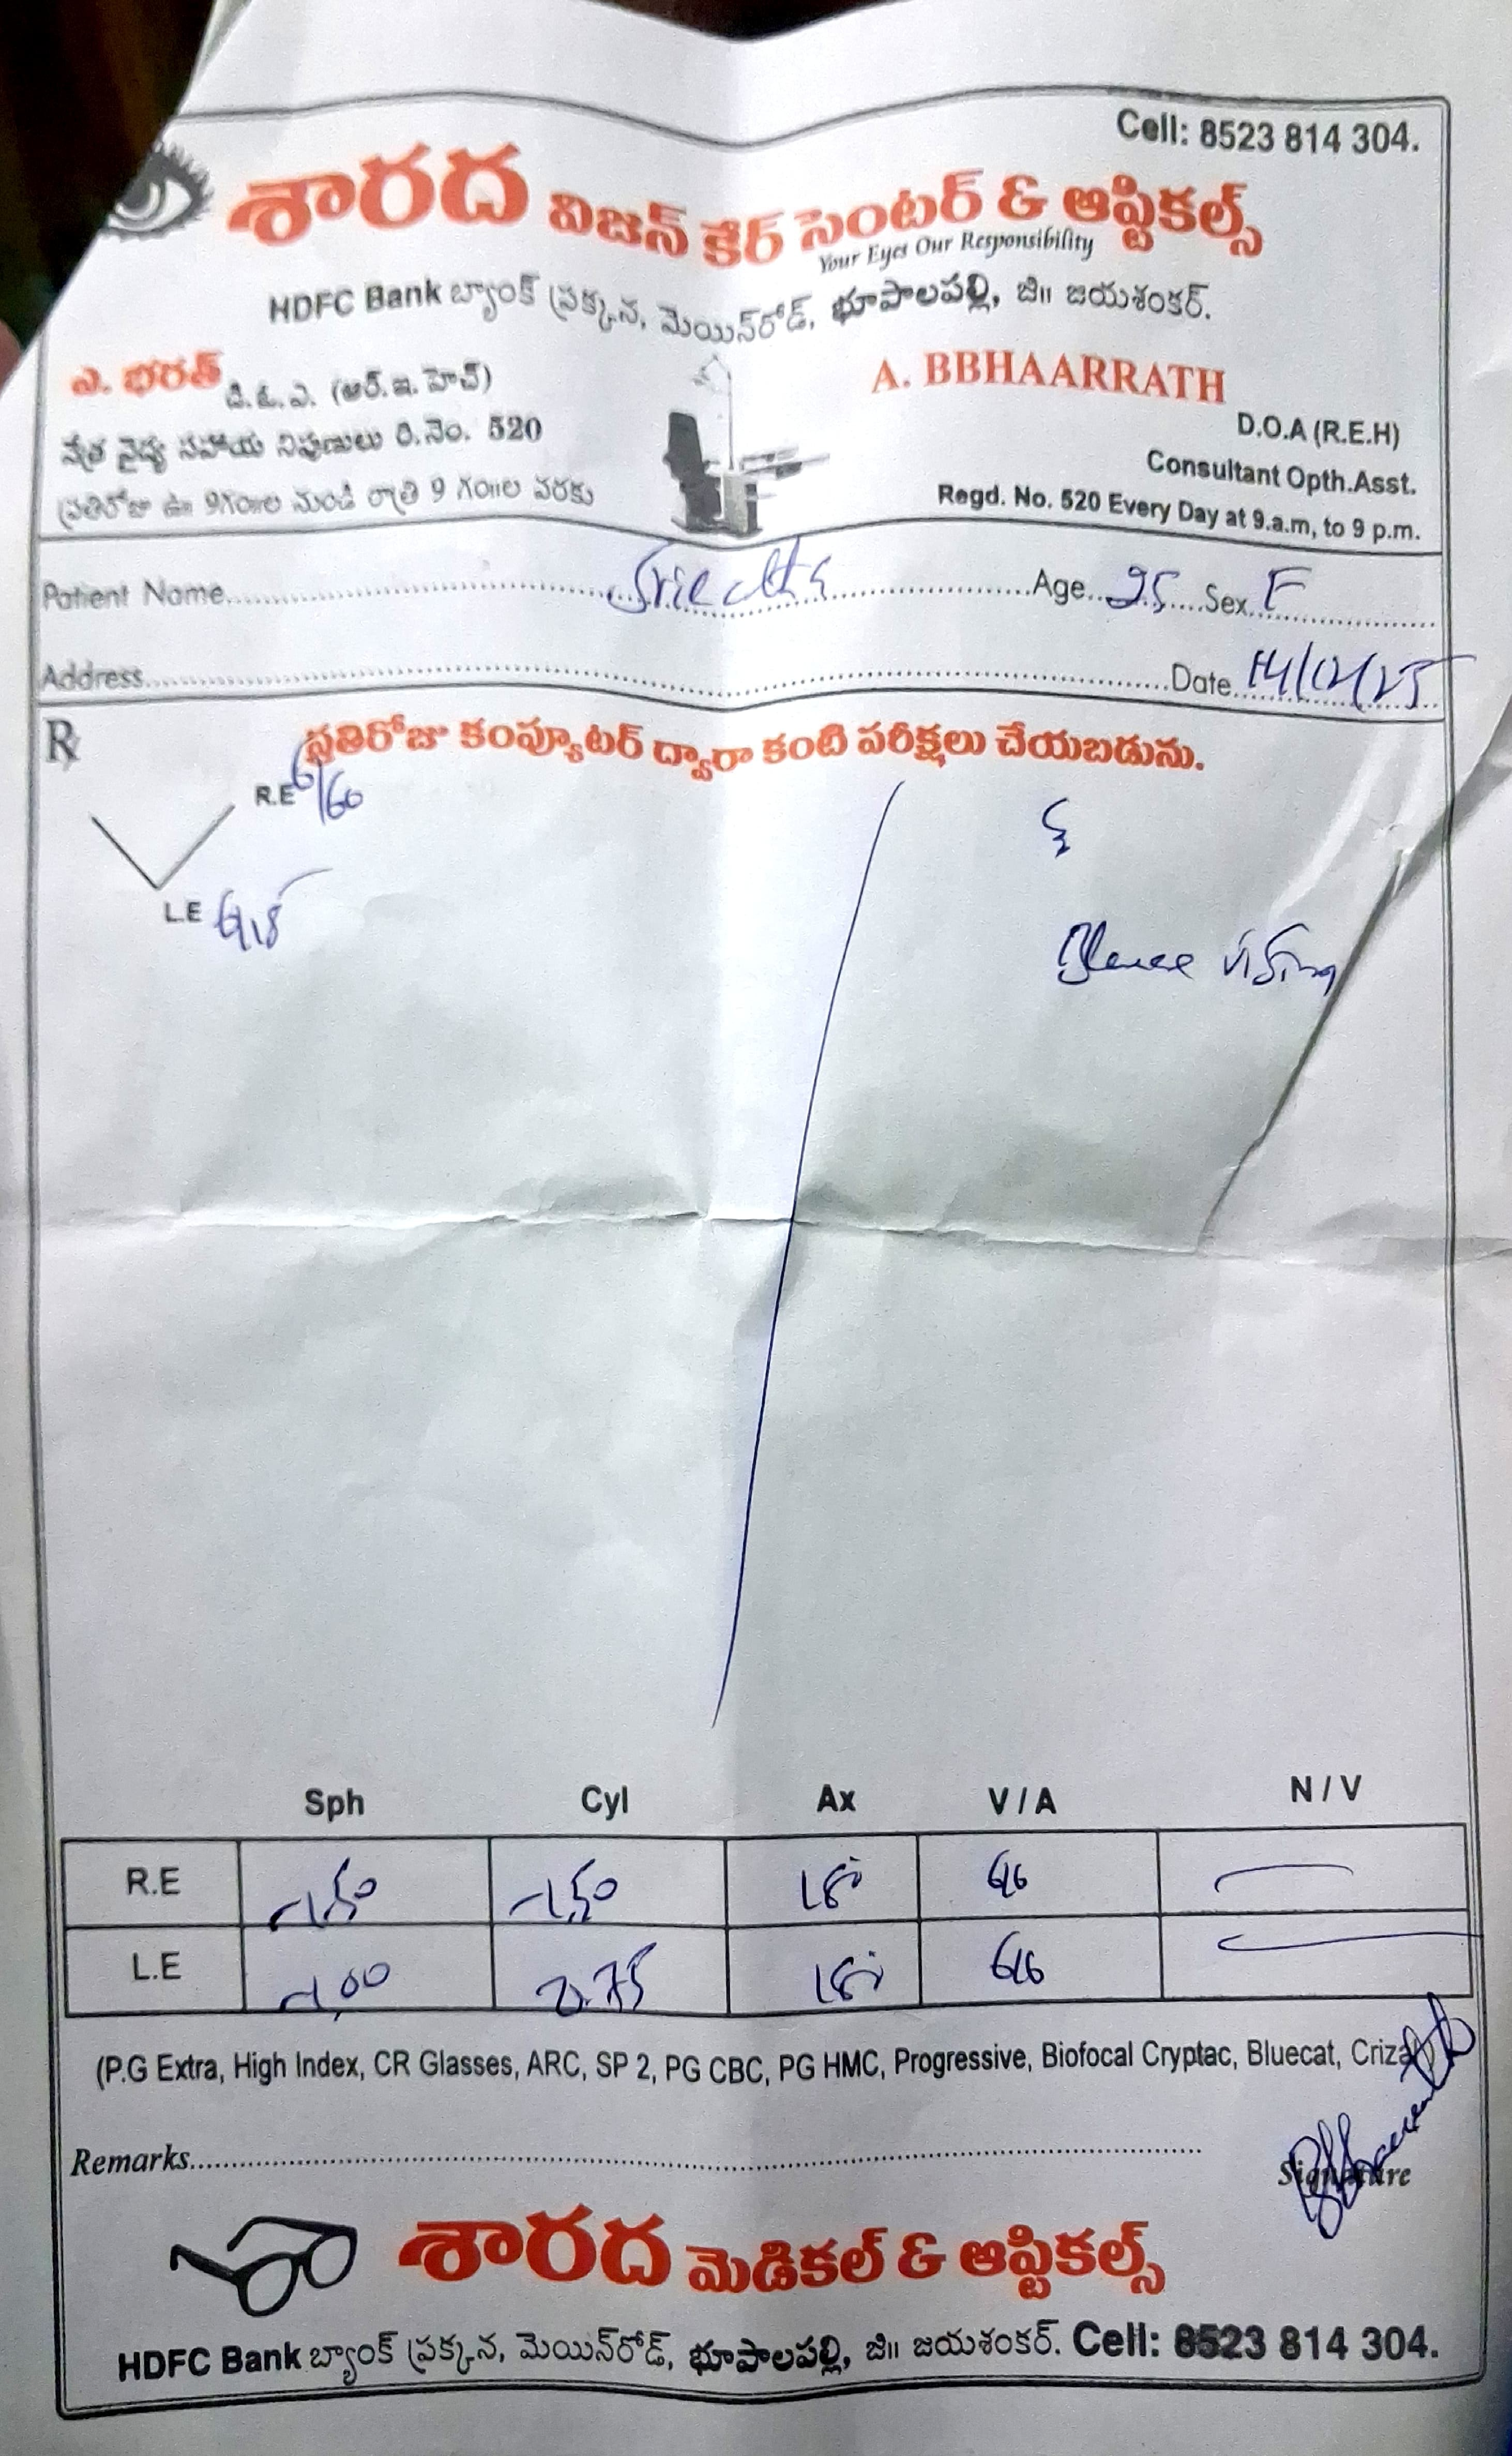 Cell: 8523 814 304.
శారద విజన్ కేర్ సెంటర్ & ఆప్టికల్స్
Your Eyes Our Responsibility
HDFC Bank బ్యాంక్ ప్రక్కన, మెయిన్‌రోడ్, భూపాలపల్లి, జి॥ జయశంకర్.
ఎ. భరత్ డి.ఓ.ఎ. (ఆర్.ఇ.హెచ్)
నేత్ర వైద్య సహాయ నిపుణులు రి.నెం. 520
ప్రతిరోజు ఉ॥ 9గం॥ల నుండి రాత్రి 9 గం॥ల వరకు
A. BBHAARRATH
D.O.A (R.E.H)
Consultant Opth.Asst.
Regd. No. 520 Every Day at 9.a.m, to 9 p.m.
Patient Name Age 25 Sex F
Address Date 14/12/25
Rx ప్రతిరోజు కంప్యూటర్ ద్వారా కంటి పరీక్షలు చేయబడును.
R.E 6/60
L.E 6/18
Sph Cyl Ax V / A N / V
R.E -1.50 -1.50 180 6/6
L.E -1.00 0.75 180 6/6
(P.G Extra, High Index, CR Glasses, ARC, SP 2, PG CBC, PG HMC, Progressive, Biofocal Cryptac, Bluecat,
Remarks
Signature
శారద మెడికల్ & ఆప్టికల్స్
HDFC Bank బ్యాంక్ ప్రక్కన, మెయిన్‌రోడ్, భూపాలపల్లి, జి॥ జయశంకర్. Cell: 8523 814 304.